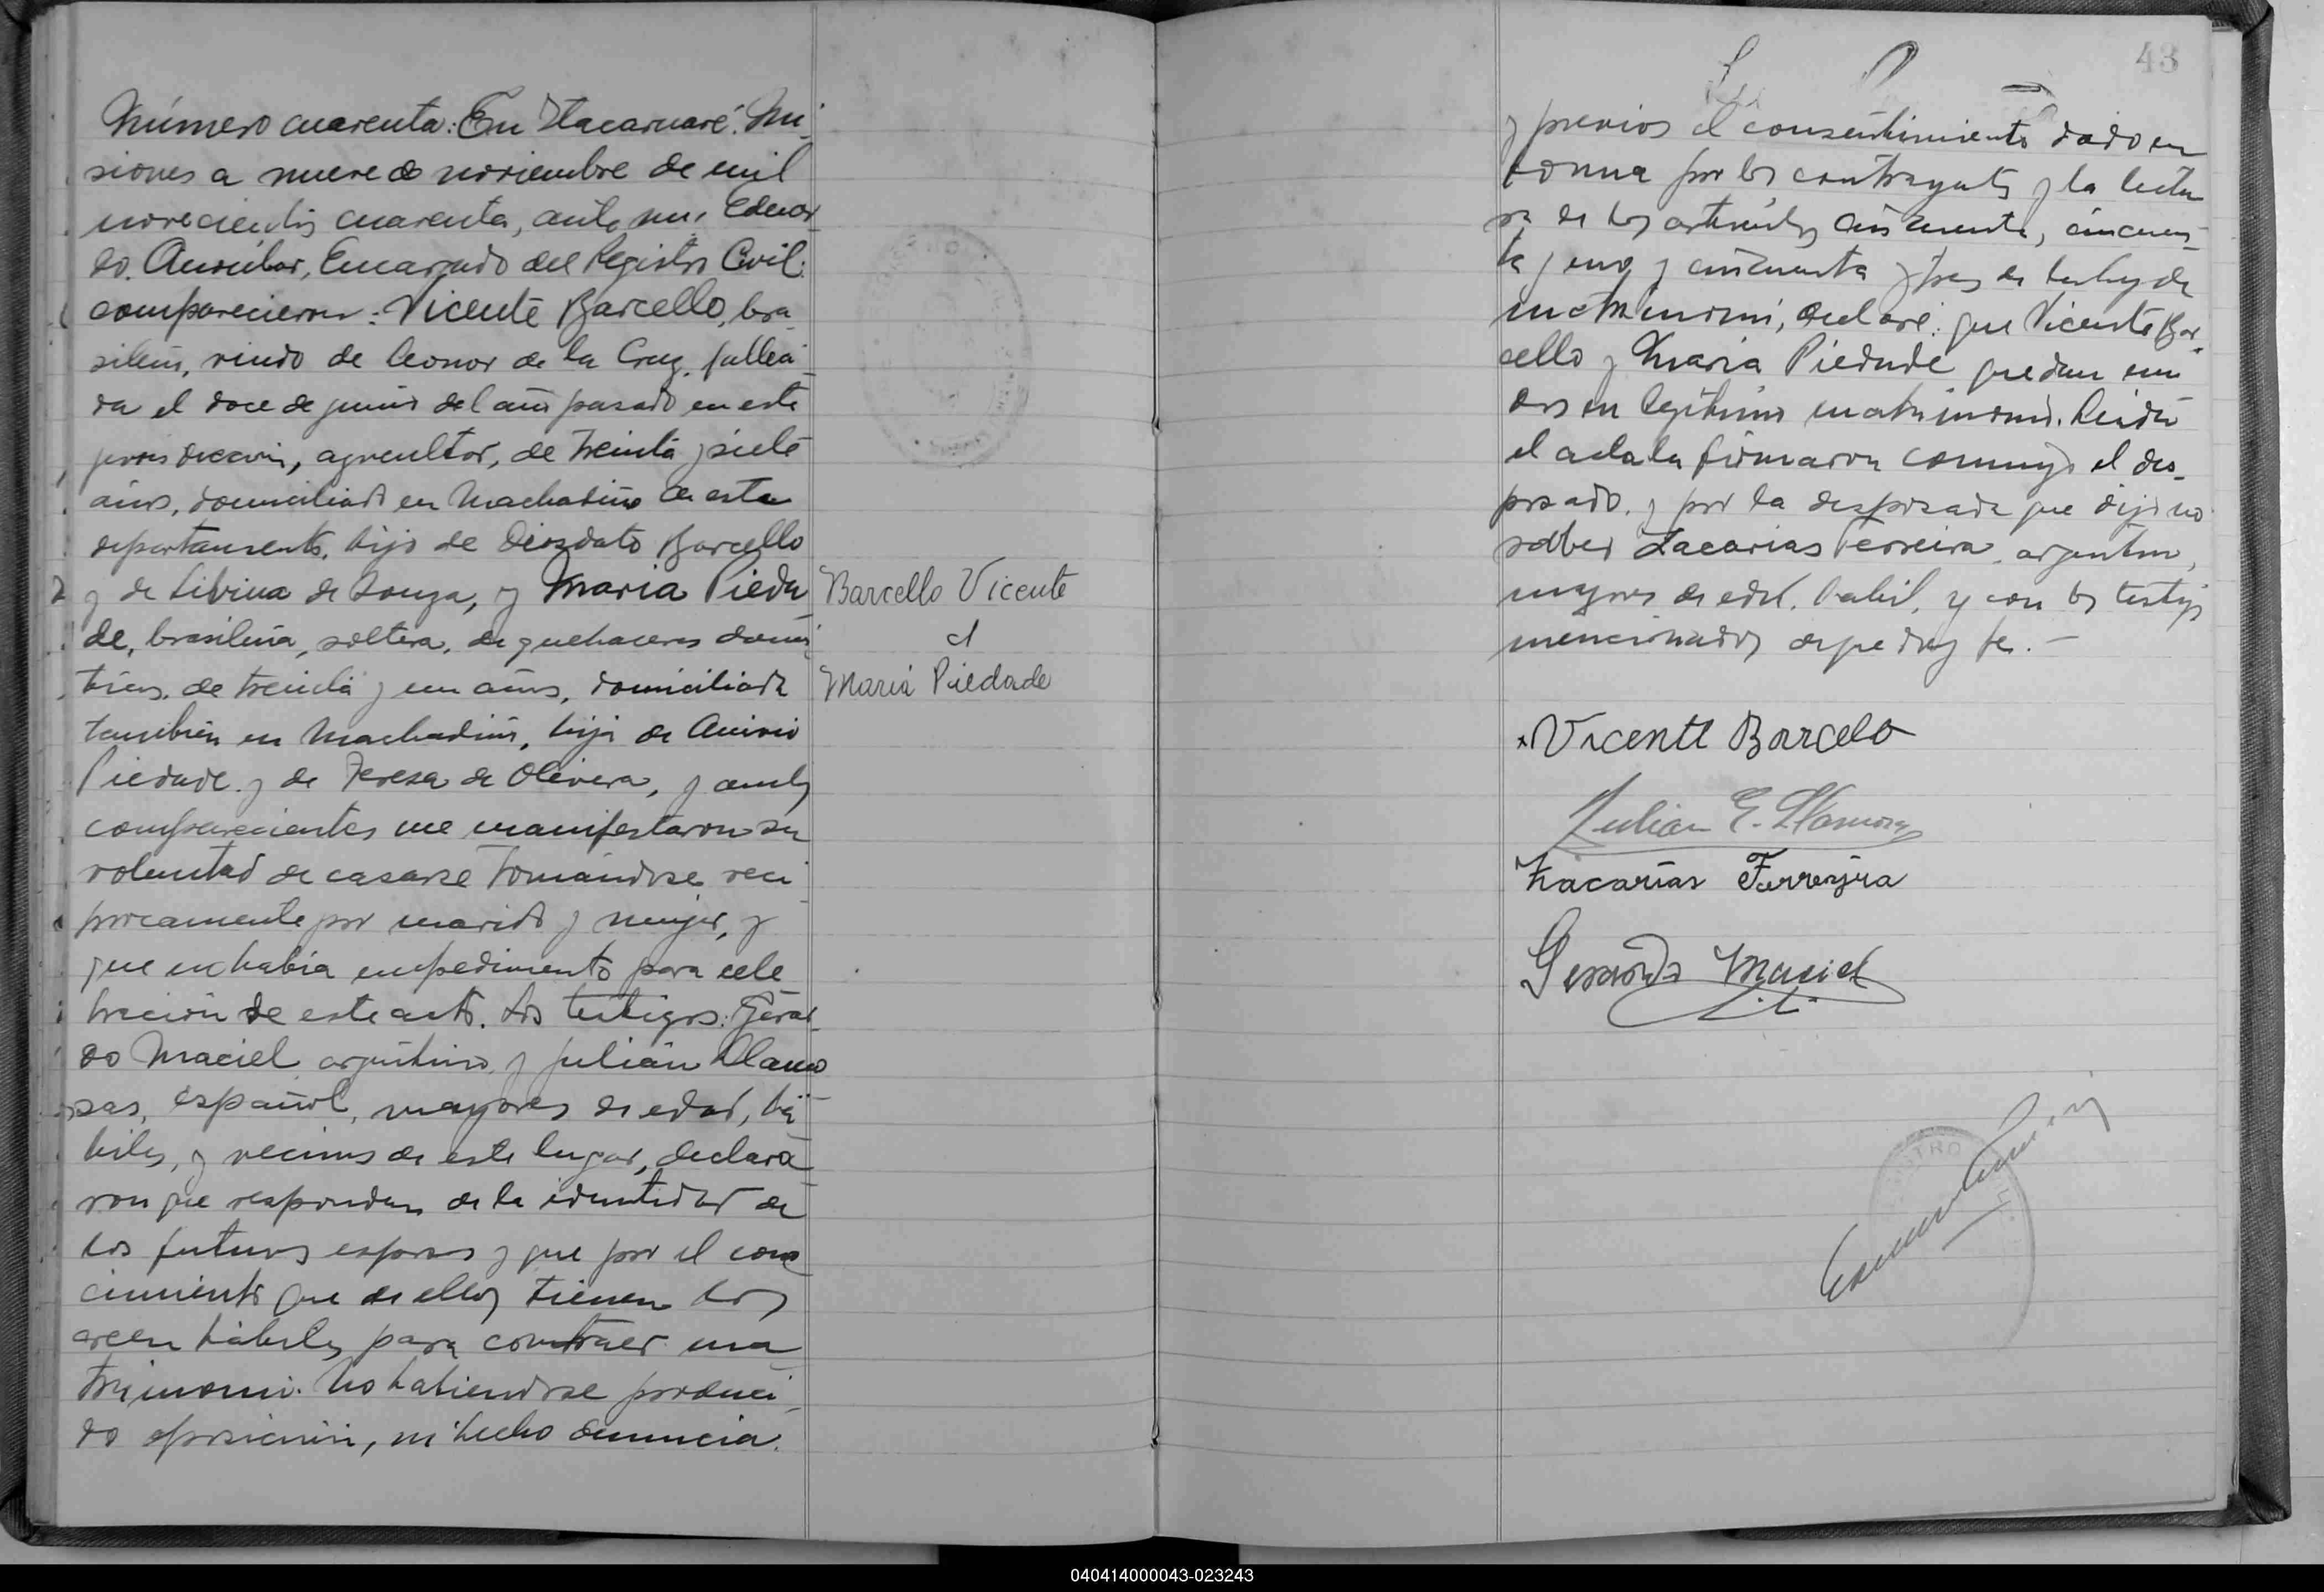 Número cuarenta: En Itacaruaré. Mi
siones a nueve de noviembre de mil
novecientos cuarenta, ante mi, Eduar
do, Encargado del Registro Civil:
comparecieron: Vicente Barcello, bra
sileño, viudo de Leonor de la Cruz, falleci
da el doce de junio del año pasado en esta
jurisdiccion, agricultor, de treinta y siete
años, domiciliado en Machadiño de este
departamento, hijo de Diosdato Barcello
y de Librina de Souza, y Maria Pieda
de, brasileña, soltera, de quehaceres domés
ticos, de treinta y un años, domiciliada
también en Machadiño, hija de
Piedade y de Teresa de Olivera, y ambos
comparecientes me manifestaron su
voluntad de casarse tomándose reci
procamente por marido y mujer, y
que no habia empedimento para cele
bración de este acto. Los testigos: Gerar
do Maciel argentino, y Julián Llamo
sas, español, mayores de edad, há
biles, y vecinos de este lugar, declara
ron que responden de la identidad de
los futuros esposos y que por el cono
cimiento que de ellos tienen los
creen hábiles para contraer ma
trimonio. No habiendose produci
do oposición, ni hecho denuncia.
Barcello Vicente
c/
Maria Piedade
43
y previos el consentimiento dado en
forma por los contrayentes y la lectu
ra de los artículos cincuenta, cincuen
ta y uno y cincuenta y tres de la ley de
matrimonio, declaré: que Vicente Bar
cello y Maria Piedade quedan uni
dos en legítimo matrimonio. Leida
el acta la firmaron conmigo el des
posado, y por la desposada que dijo no
saber Zacarias Ferreira, argentino,
mayor de edad, habil, y con los testigos
mencionados de que doy fe. —
x Vicente Barcelo
Julian E. Llamosas
Zacarias Ferreyra
Gerardo Maciel
040414000043-023243